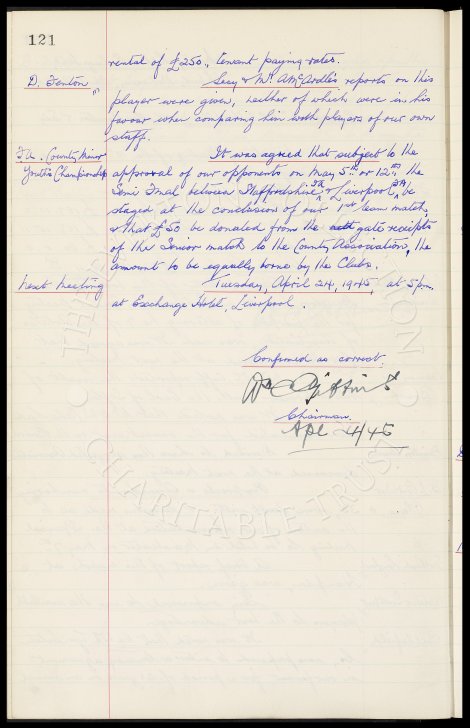 121
rental of £250, tenant paying rates.
D. Fenton Secy & Mr. A. McArdle's reports on this
player were given, neither of which were in his
favour when comparing him with players of our own
staff.
F.A. County Minor It was agreed that subject to the
Youths Championship approval of our opponents on May 5th or 12th, the
Semi Final between Staffordshire F.A. & Liverpool C.F.A. be
staged at the conclusion of our 1st team match,
& that £50 be donated from the nett gate receipts
of the Senior match to the County Association, the
amount to be equally borne by the Clubs.
next meeting Tuesday, April 24, 1945, at 5pm.
at Exchange Hotel, Liverpool.
Confirmed as correct.
Wm C Gibbins
Chairman
Apl 24/45
CHARITABLE TRUST